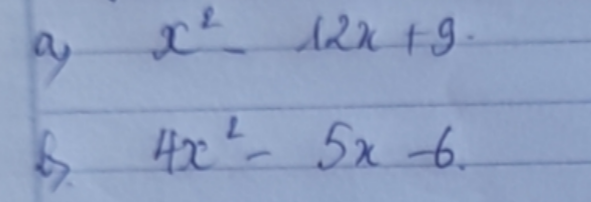 a) x² - 12x + 9.
b) 4x² - 5x - 6.